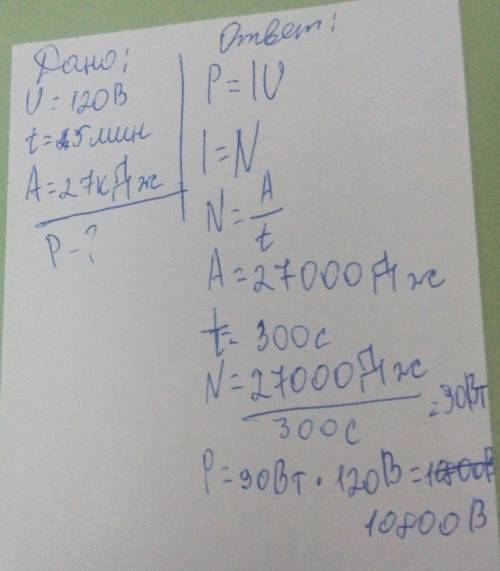 Дано:
U = 120В
t = 5 мин
A = 27кДж
P - ?
Ответ:
P = IU
I = N
N = A/t
A = 27000Дж
t = 300с
N = 27000Дж/300с = 90Вт
P = 90Вт · 120В =
10800В